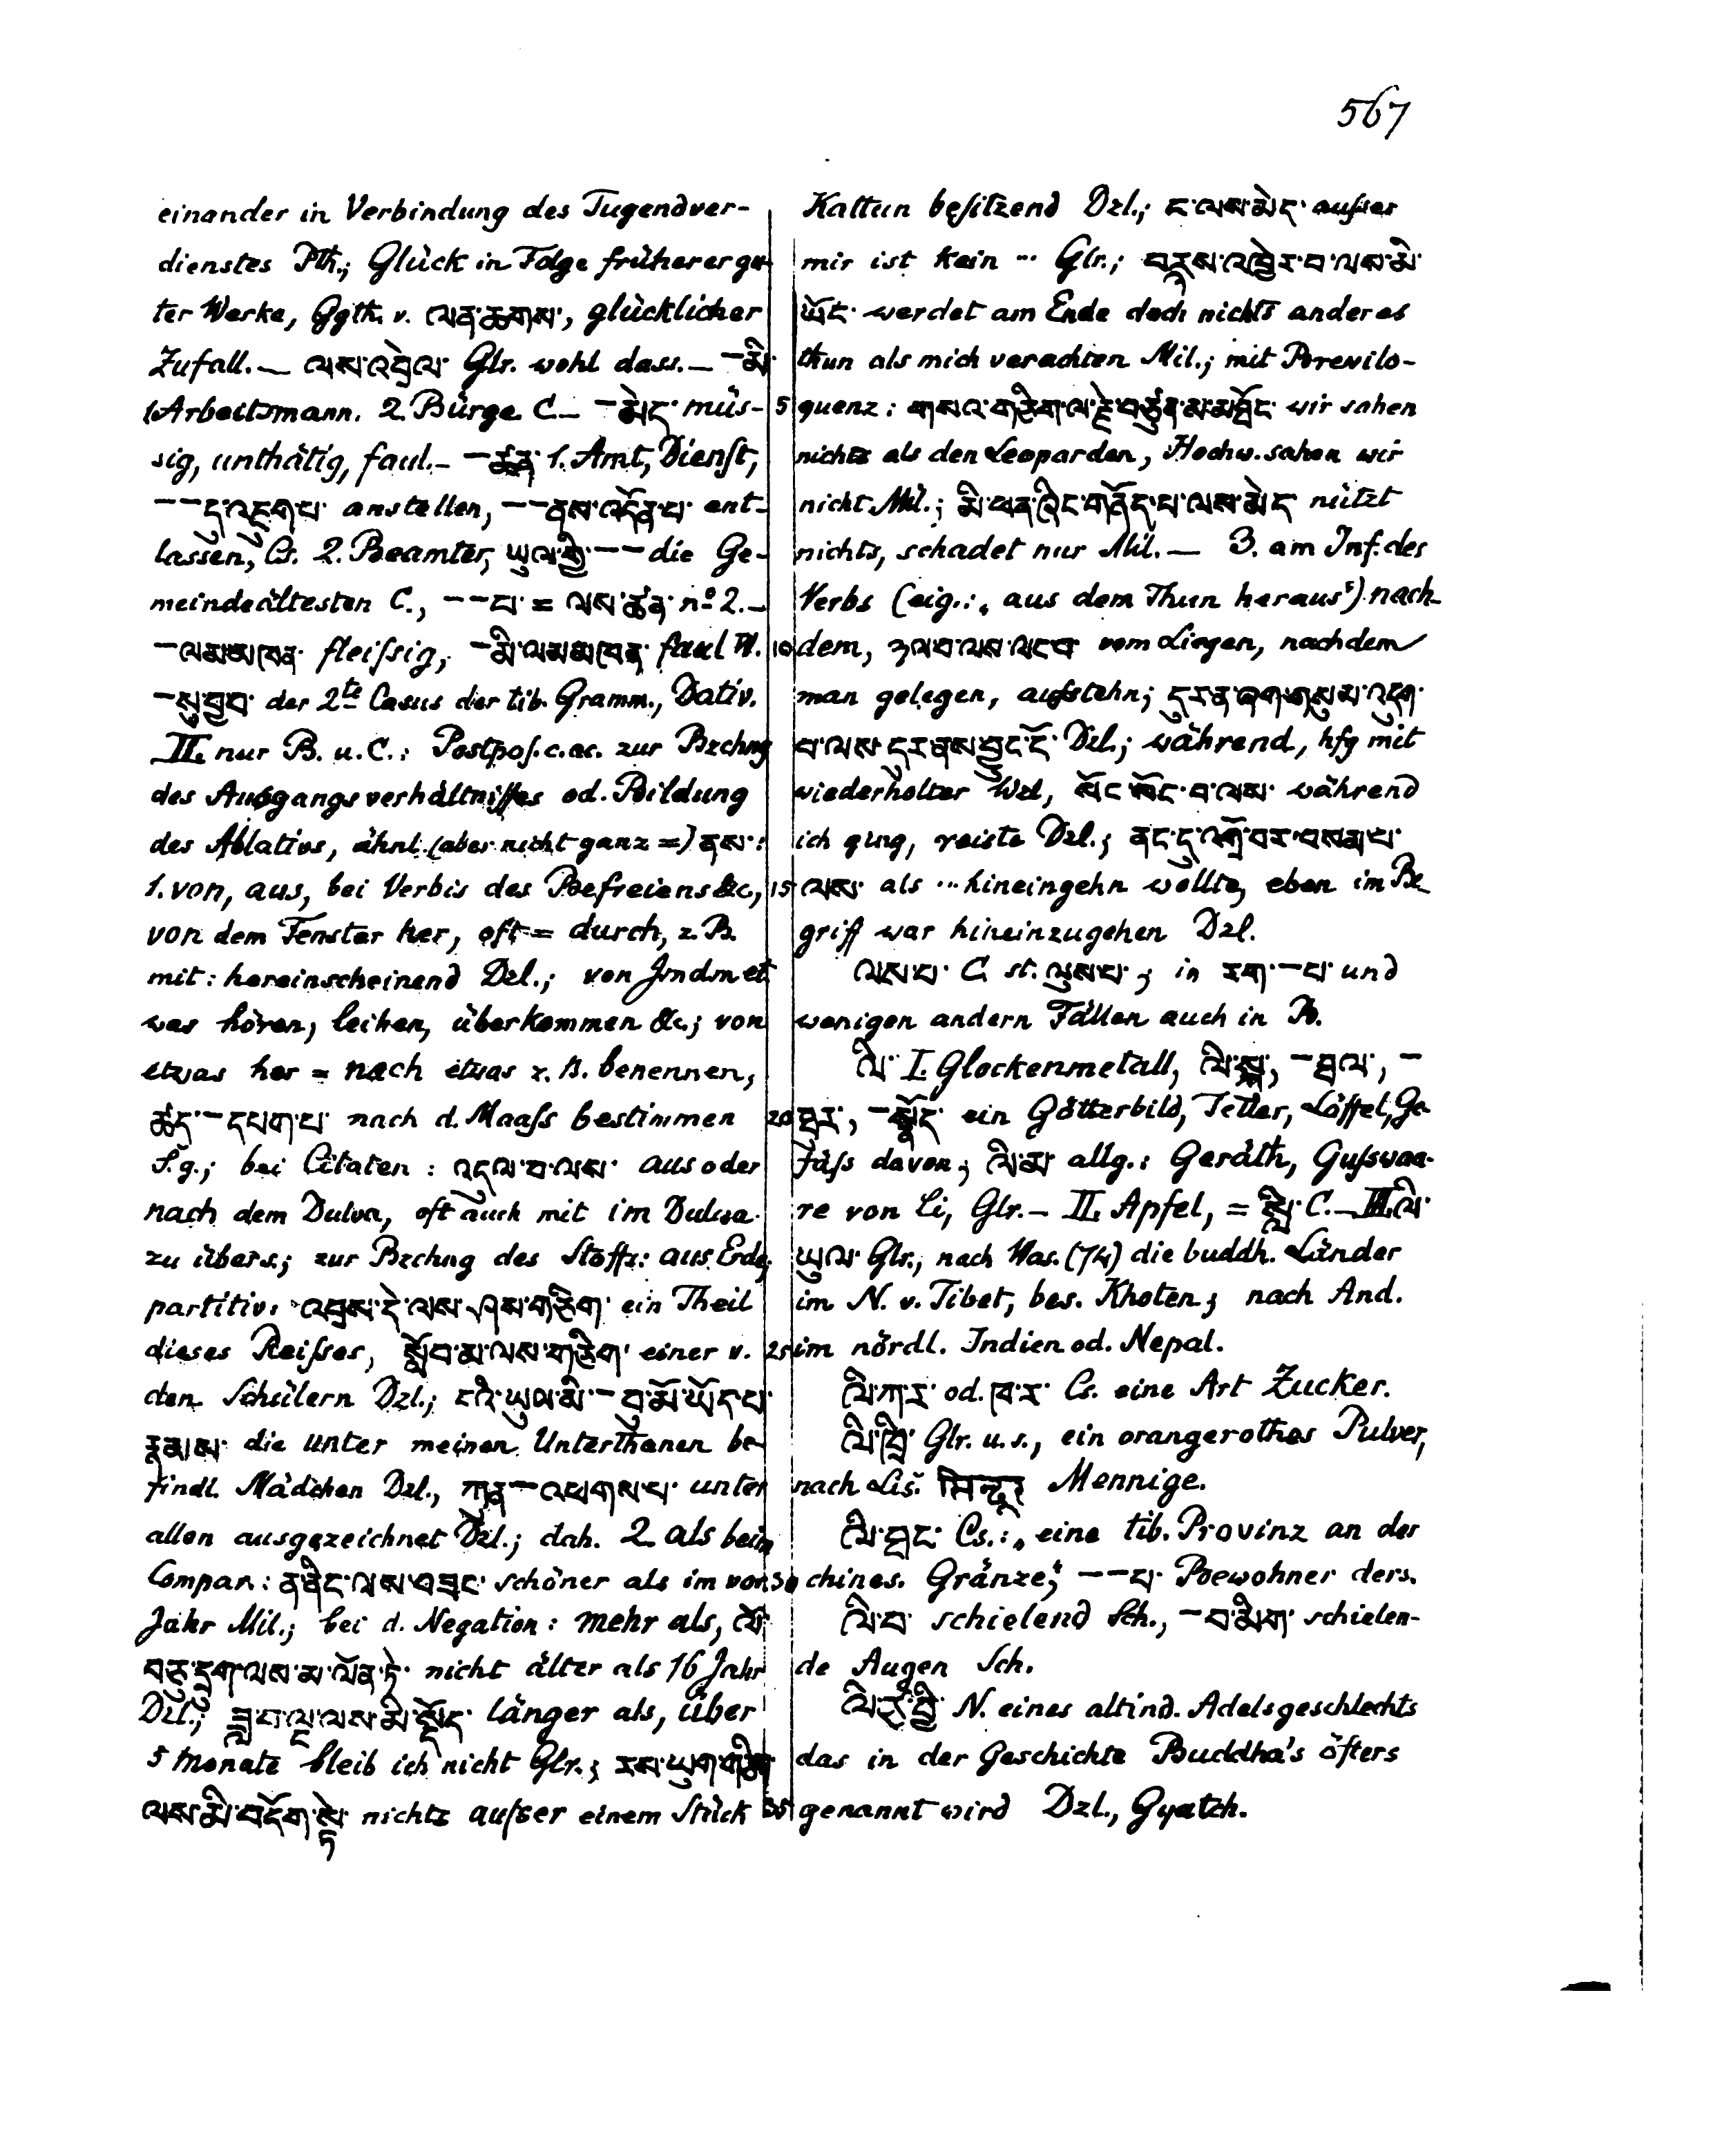 567
einander in Verbindung des Tugendver-
dienstes Pth.; Glück in Folge früherer gu-
ter Werke, Ggth. v. ལན་ཆགས་, glücklicher
Zufall. — ལས་འབྲེལ་ Glr. wohl dass. — –མི་
1 Arbeitsmann. 2. Bürge C. — –མེད་ müs-
sig, unthätig, faul. – –ཚན་ 1. Amt, Dienst,
––དུ་འཇུག་པ་ anstellen, ––ནས་འདོན་པ་ ent-
lassen, Cs. 2. Beamter, ཡུལ་གྱི་–– die Ge-
meindeältesten C., ––པ་ = ལས་ཚན་ nº 2. –
–ལམ་མཁན་ fleiſsig, –མི་ལམ་མཁན་ faul W.
–སུ་བྱ་བ་ der 2te Casus der tib. Gramm., Dativ.
II. nur B. u. C.: Postpoſ. c. ac. zur Bzchng
des Ausgangsverhältniſſes od. Bildung
des Ablativs, ähnl. (aber nicht ganz =) ནས་:
1. von, aus, bei Verbis des Befreiens &c,
von dem Fenster her, oft = durch, z. B.
mit: hereinscheinend Dzl.; von Jmdm et
was hören, leihen, überkommen &c.; von
etwas her = nach etwas z. B. benennen,
ཚད་–དཔག་པ་ nach d. Maaſs bestimmen
S.g.; bei Citaten: འདུལ་བ་ལས་ aus oder
nach dem Dulva, oft auch mit im Dulwa
zu übers.; zur Bzchng des Stoffs: aus Erde;
partitiv: འབྲས་དེ་ལས་ཤས་གཅིག་ ein Theil
dieses Reiſses, སློབ་མ་ལས་གཅིག་ einer v.
den Schülern Dzl.; ངའི་ཡུལ་མི་–བུ་མོ་ཡོད་པ་
རྣམས་ die unter meinen Unterthanen be-
findl. Mädchen Dzl., ཀུན་–འཕགས་པ་ unter
allen ausgezeichnet Dzl.; dah. 2. als beim
Compar.: ན་ནིང་ལས་བཟང་ schöner als im vor.
Jahr Mil.; bei d. Negation: mehr als, ལོ་
བཅུ་དྲུག་ལས་མ་ལོན་ཏེ་ nicht älter als 16 Jahr
Dzl.; ཟླ་བ་ལྔ་ལས་མི་སྡོད་ länger als, über
5 Monate bleib ich nicht Glr.; རས་ཡུག་གཅིག་
ལས་མི་བདོག་སྟེ་ nichts auſser einem Stück
Kattun beſitzend Dzl.; ང་ལས་མེད་ auſser
mir ist kein ... Glr.; བརྙས་འཁྱེར་བ་ལས་མི་
ཡོང་ werdet am Ende doch nichts anderes
thun als mich verachten Mil.; mit Brevilo-
5 quenz: གསའ་གཅིག་ལ་རྗེ་བཙུན་མ་མཐོང་ wir sahen
nichts als den Leoparden, Hochw. sahen wir
nicht Mil.; མི་ཕན་ཞིང་གནོད་པ་ལས་མེད nützt
nichts, schadet nur Mil. — 3. am Inf. des
Verbs (eig.: „aus dem Thun heraus“) nach-
10 dem, ཉལ་བ་ལས་ལང་བ་ vom Liegen, nachdem
man gelegen, aufstehn; དུར་ན་ཞག་གསུམ་འདུག་
བ་ལས་དུར་ནས་བྱུང་ངོ་ Dzl.; während, hfg mit
wiederholter Wzl, སོང་སོང་བ་ལས་ während
ich ging, reiste Dzl.; ནང་དུ་འགྲོ་བར་བསམ་པ་
15 ལས་ als ... hineingehn wollte, eben im Be-
griff war hineinzugehen Dzl.
ལས་པ་ C. st. ལུས་པ་; in རག་–པ་ und
wenigen andern Fällen auch in B.
ལི་ I. Glockenmetall, ལི་སྐུ་, –ཐལ་, –
20 ཐུར་, –སྣོད་ ein Götterbild, Teller, Löffel, Ge-
fäſs davon; ལི་མ་ allg.: Geräth, Guſswaa-
re von Li, Glr. – II. Apfel, = སླི་ C. – III. ལི་
ཡུལ་ Glr., nach Was. (74) die buddh. Länder
im N. v. Tibet, bes. Khoten; nach And.
25 im nördl. Indien od. Nepal.
ལི་ཀ་ར་ od. ཁ་ར་ Cs. eine Art Zucker.
ལི་ཁྲི་ Glr. u. s., ein orangerothes Pulver,
nach Liš. सिन्दूर Mennige.
ལི་ཐང་ Cs.: „eine tib. Provinz an der
30 chines. Gränze“, ––པ་ Bewohner ders.
ལི་བ་ schielend Sch., –བ་མིག་ schielen-
de Augen Sch.
ལི་ཙ་བྱི་ N. eines altind. Adelsgeschlechts
das in der Geschichte Buddha's öfters
35 genannt wird Dzl., Gyatch.